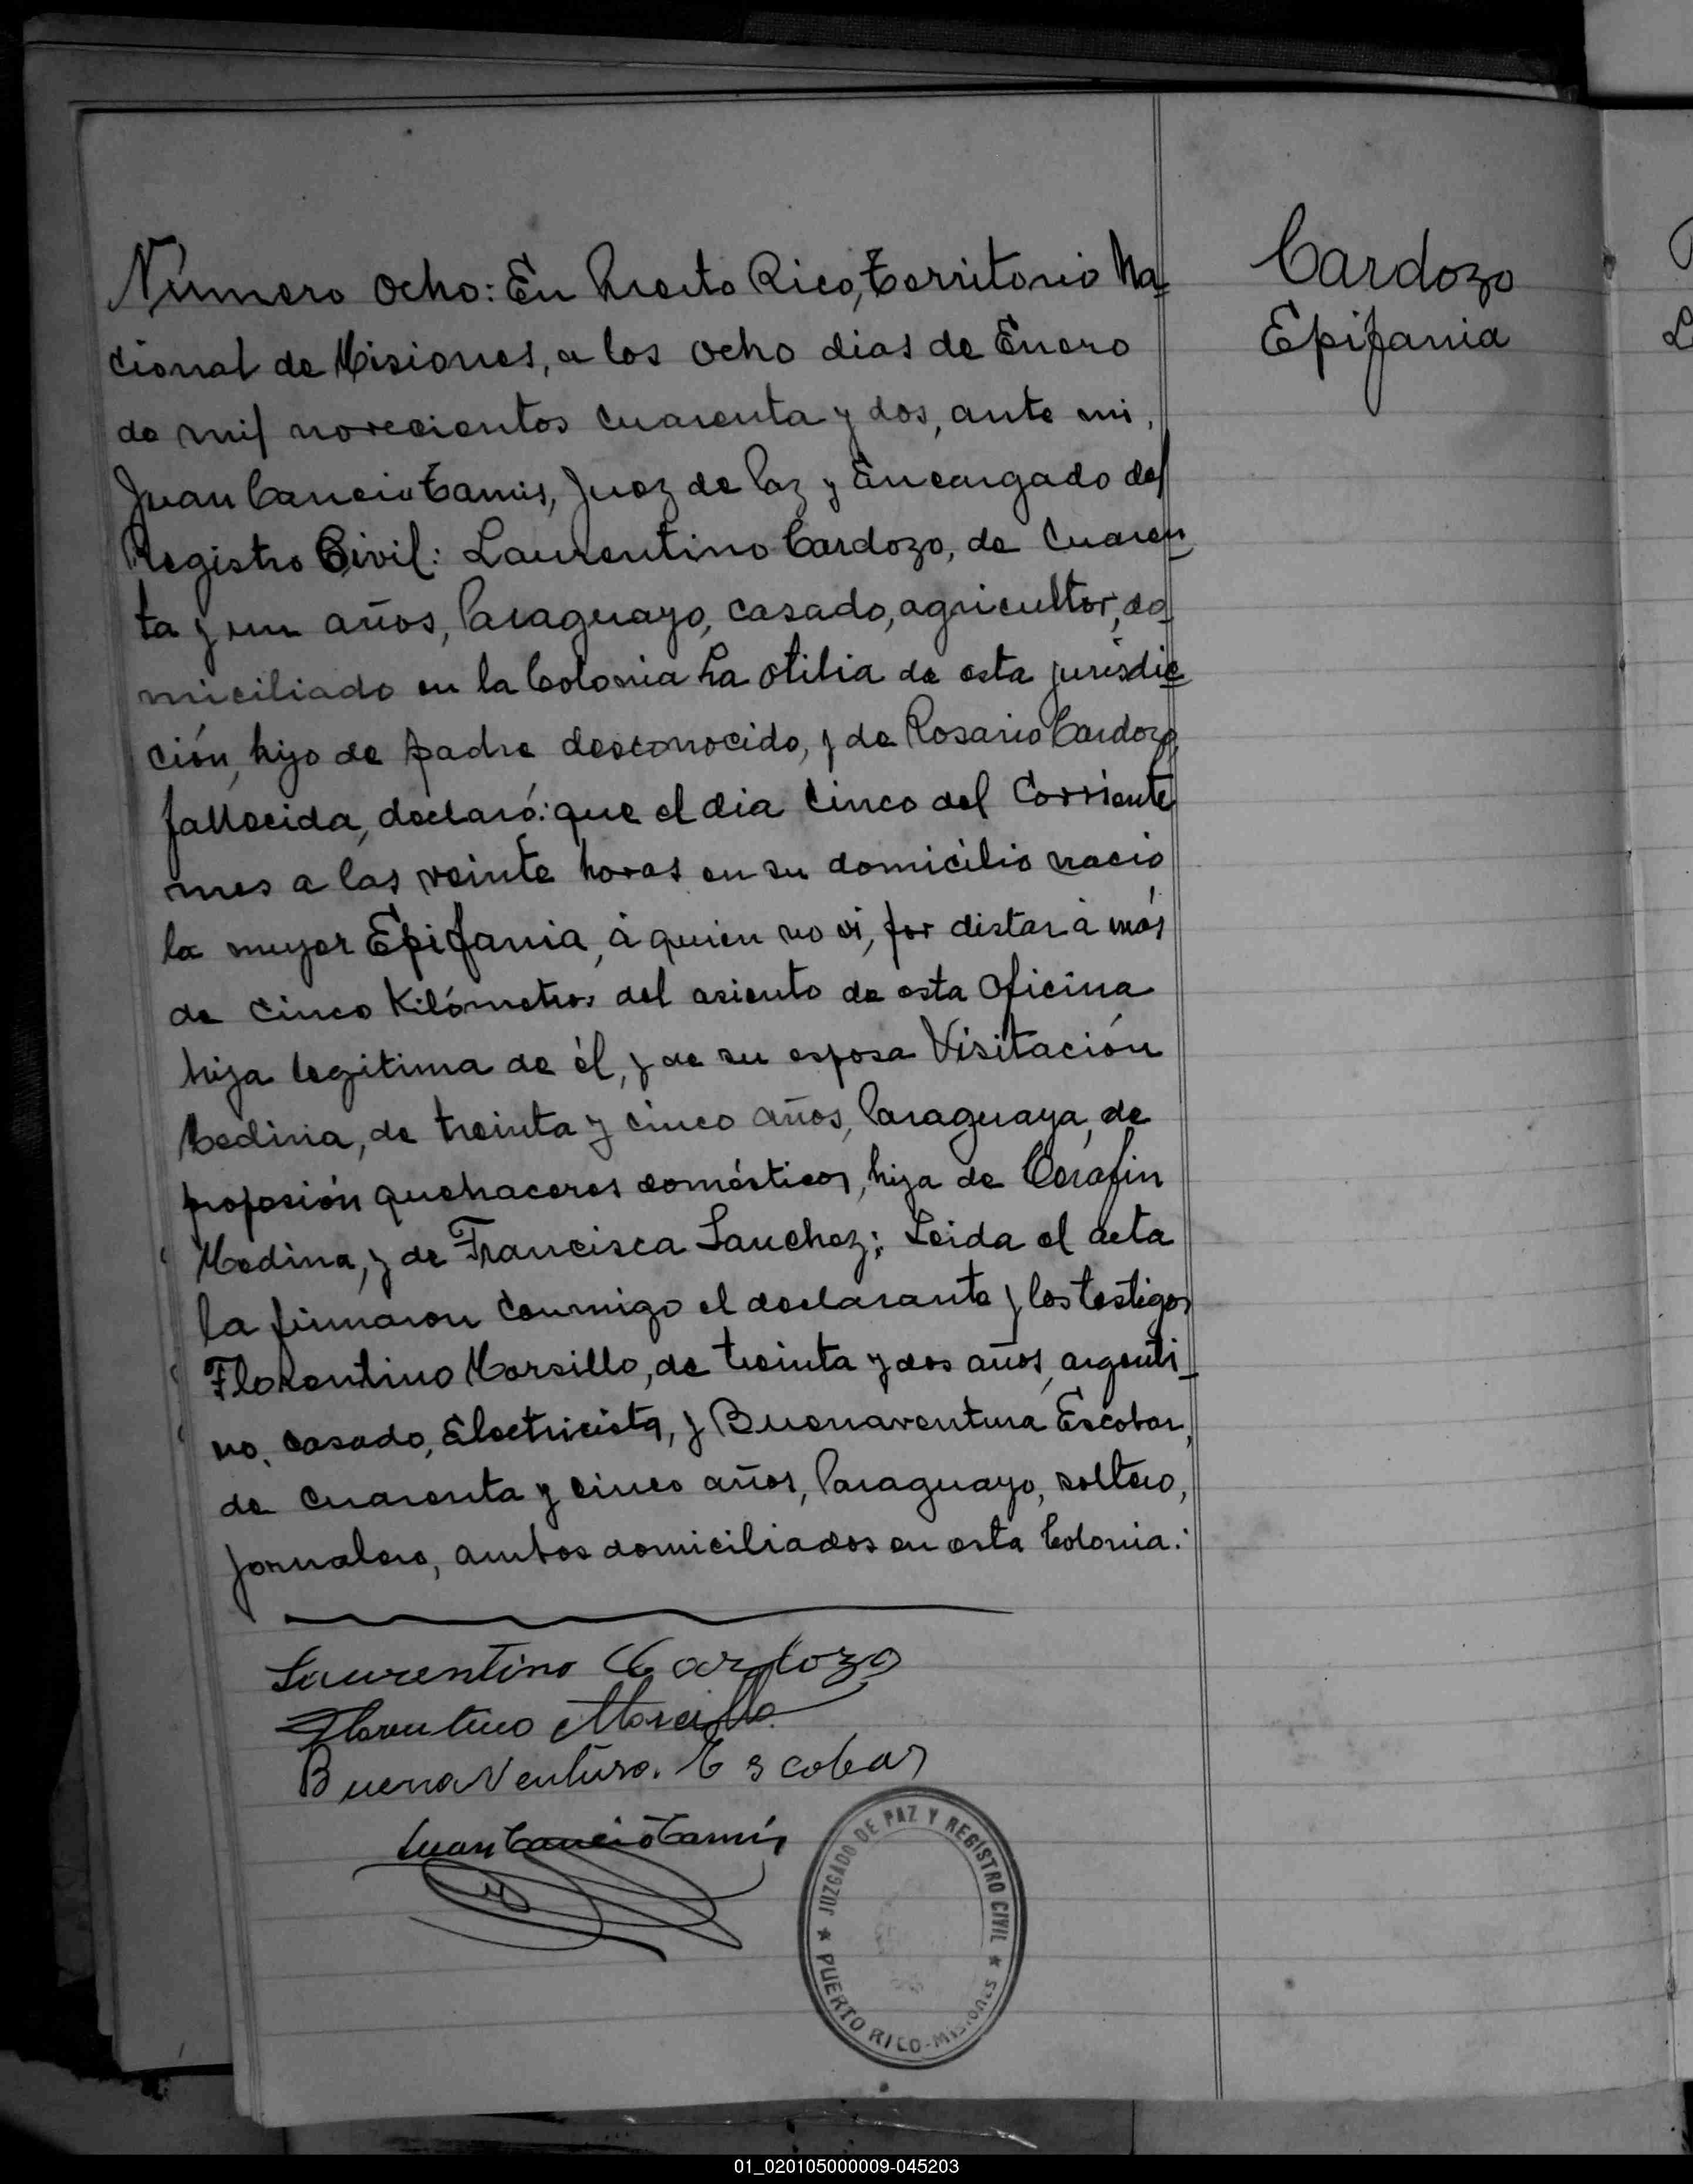 Número Ocho: En Puerto Rico, Territorio Na-
cional de Misiones, a los ocho dias de Enero
de mil novecientos cuarenta y dos, ante mi,
Juan Cancio Tamis, Juez de Paz y Encargado del
Registro Civil: Laurentino Cardozo, de Cuaren
ta y un años, Paraguayo, casado, agricultor, do-
miciliado en la Colonia La Otilia de esta jurisdic
ción, hijo de padre desconocido, y de Rosario Cardozo,
fallecida, declaró: que el dia cinco del Corriente
mes a las veinte horas en su domicilio nació
la mujer Epifania, á quien no vi, por distar á más
de cinco Kilómetros del asiento de esta Oficina
hija legitima de él, y de su esposa Visitación
Medina, de treinta y cinco años, Paraguaya, de
profesión quehaceres domésticos, hija de Cerafin
Medina, y de Francisca Sanchez; Leida el acta
la firmaron conmigo el declarante y los testigos
Florentino Morsillo, de treinta y dos años, argenti-
no, casado, Electricista, y Buenaventura Escobar,
de cuarenta y cinco años, Paraguayo, soltero,
jornalero, ambos domiciliados en esta Colonia.
Cardozo
Epifania
Laurentino Cardozo
Florentino Morcillo
Buenaventura. Escobar
Juan Cancio Tamis
JUZGADO DE PAZ Y REGISTRO CIVIL
PUERTO RICO-MISIONES
01_020105000009-045203